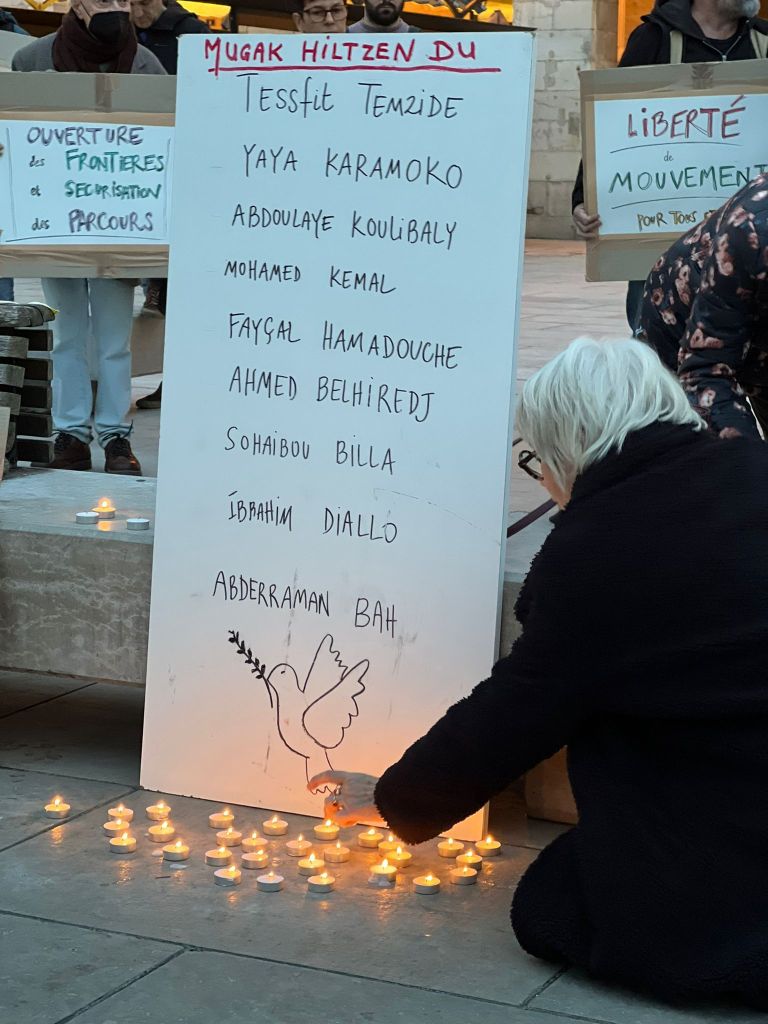 MUGAK HILTZEN DU
TESSFIT TEMZIDE
YAYA KARAMOKO
ABDOULAYE KOULIBALY
MOHAMED KEMAL
FAYÇAL HAMADOUCHE
AHMED BELHIREDJ
SOHAIBOU BILLA
IBRAHIM DIALLO
ABDERRAMAN BAH
OUVERTURE
des FRONTIERES
et SECURISATION
des PARCOURS
LIBERTÉ
de
MOUVEMENT
POUR TOUS